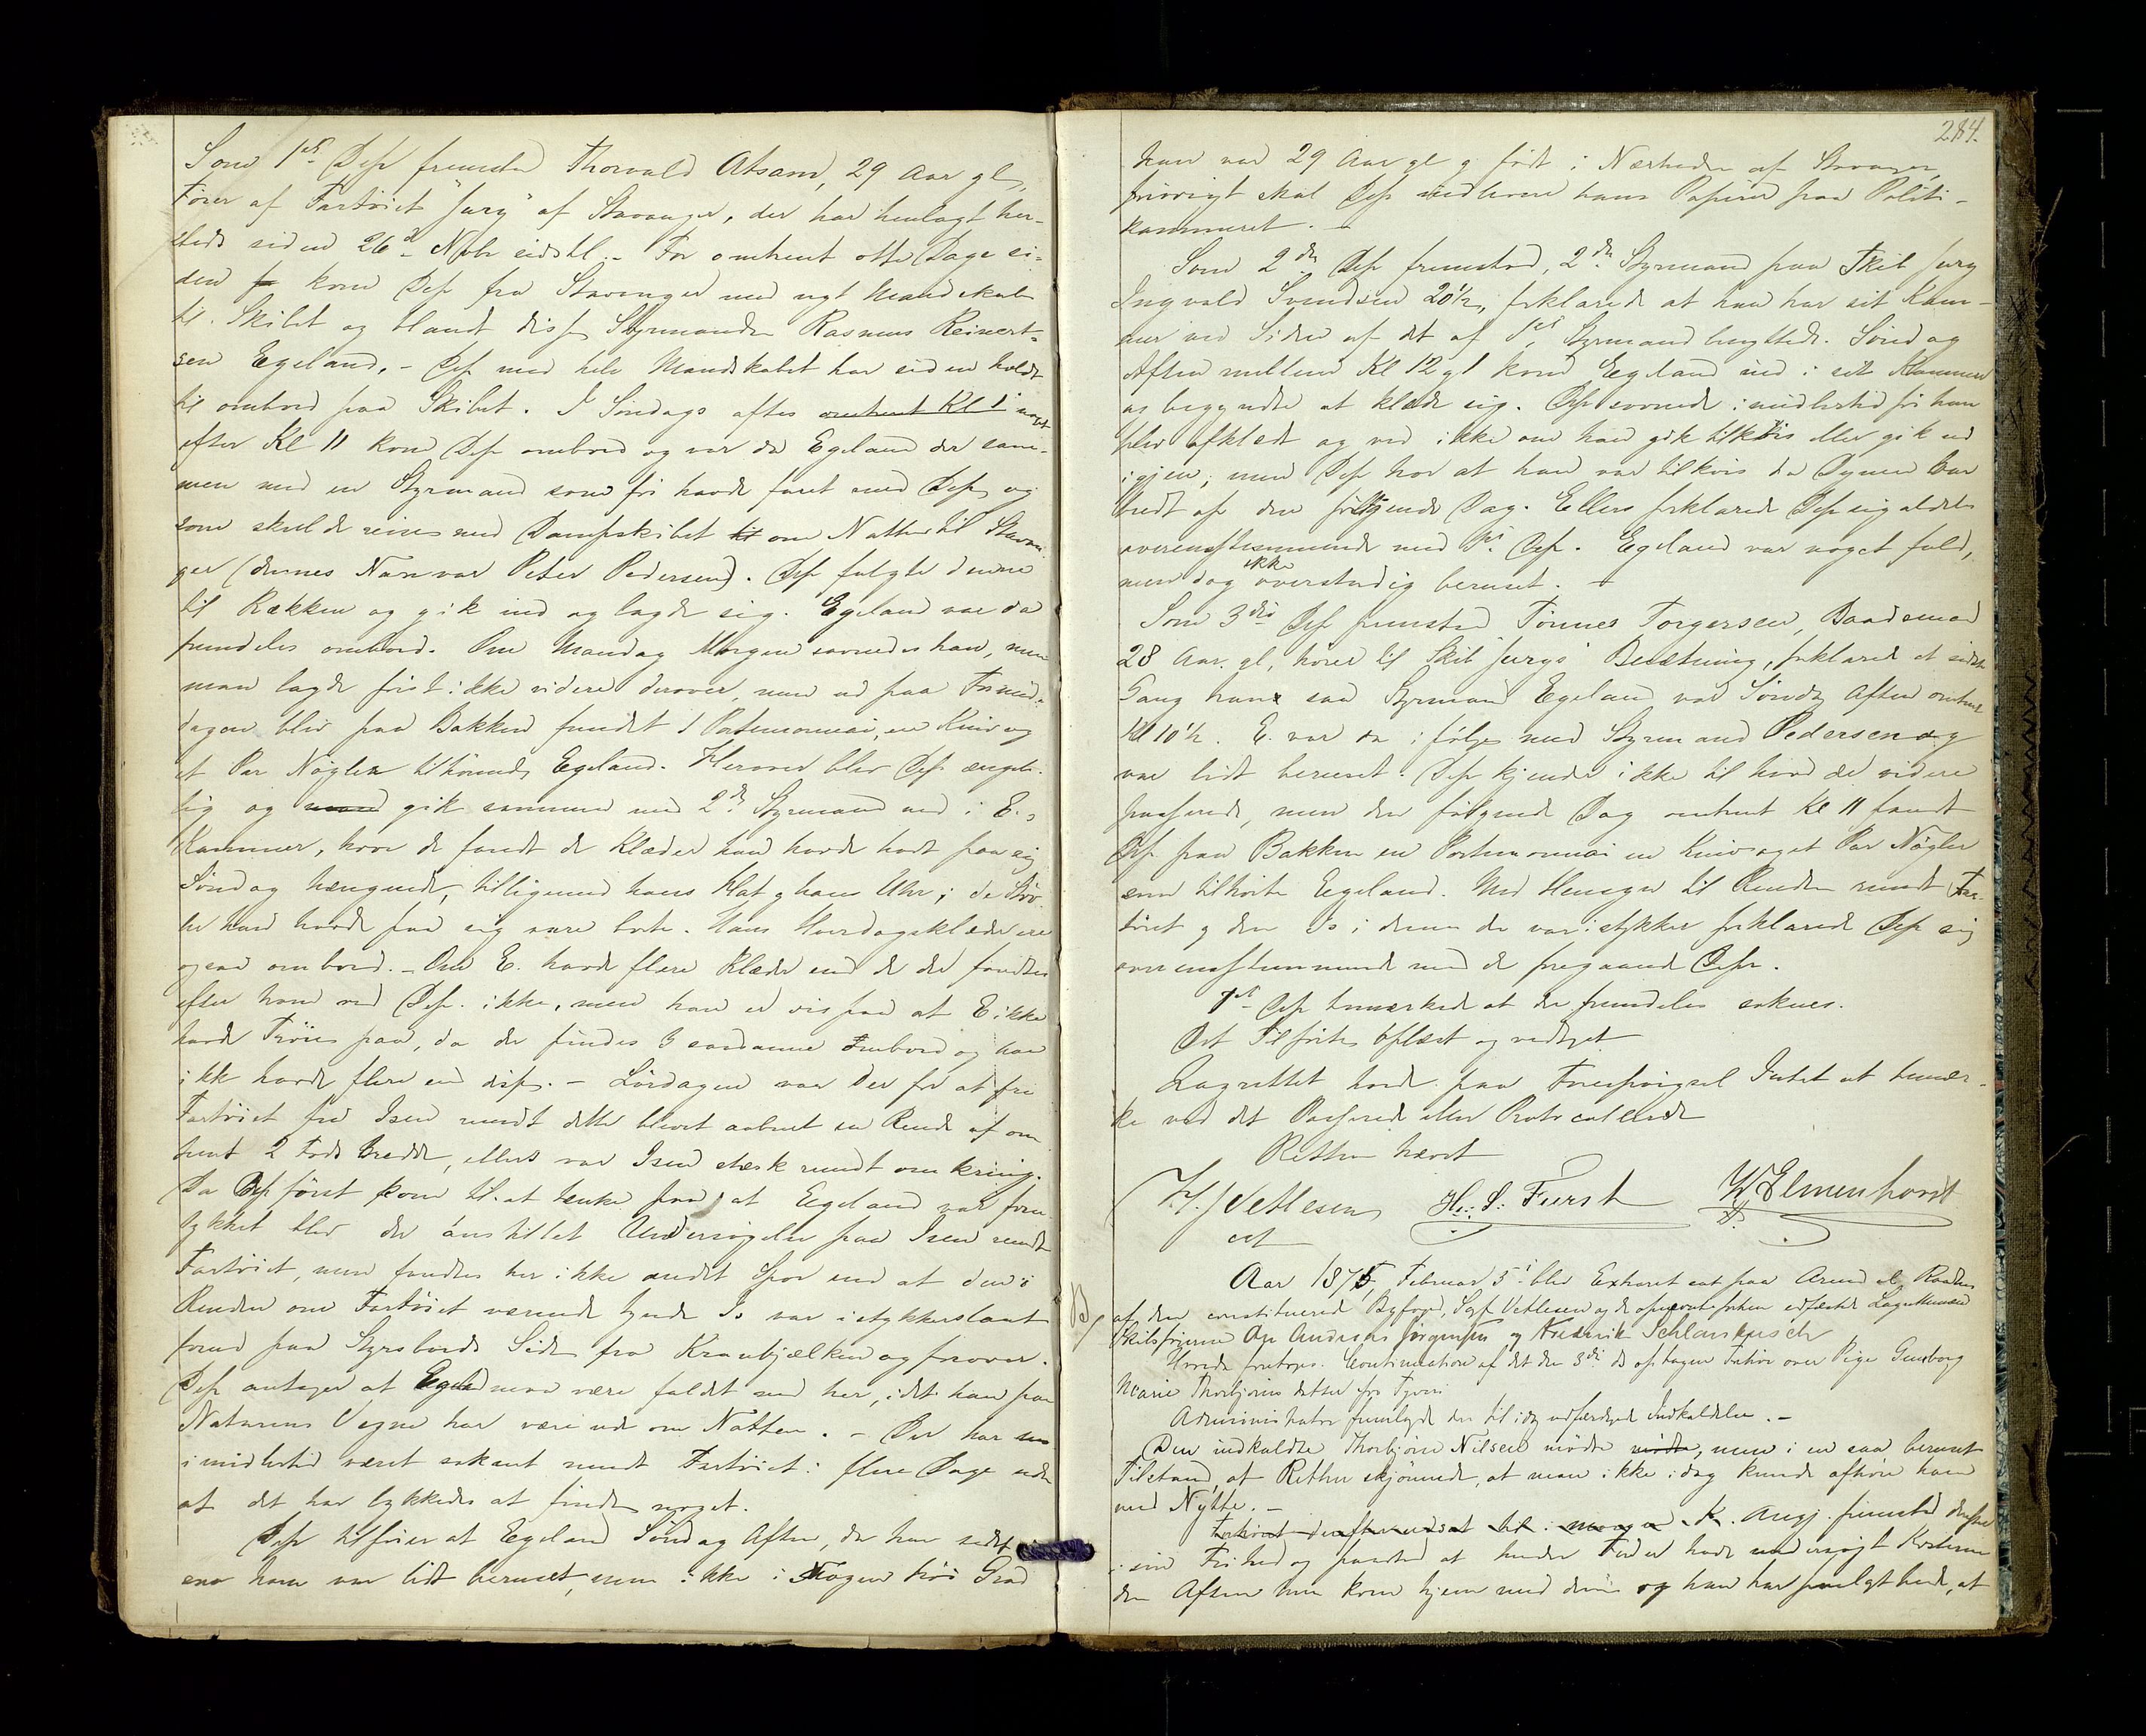 Som 1ste Dep fremstod Thorvald Atsam, 29 Aar gl,
Fører af Fartöiet "Jury" af Stavanger, der har henlagt her-
steds siden 26de Novbr sidstl. - For omtrent otte Dage si-
den kom Dep fra Stavanger med nyt Mandskab
til Skibet og blandt disse Styrmanden Rasmus Reinert-
sen Egeland. - Dep med hele Mandskabet har siden holdt
til ombord paa Skibet. I Søndags aftes omtrent Kl 1 noget
efter Kl 11 kom Dep ombord og var da Egeland der sam-
men med en Styrmand som før havde faret med Dep og
som skulde reise med Dampskibet til om Natten til Stavan-
ger (dennes Navn var Peter Pedersen). Dep fulgte denne
til Rækken og gik ind og lagde sig. Egeland var da
fremdeles ombord. Om Mandag Morgen savnedes han, men
man lagde først ikke videre derover, men ud paa Formid-
dagen blev paa Bakken fundet 1 Portemonnai, en Kniv og
et Par Nøgler tilhørende Egeland. Herover blev Dep ængste-
lig og gik sammen med 2den Styrmand ned i E.s
Kammer, hvor de fandt de Klæder han havde havt paa sig
Søndag hængende, tilligemed hans Hat og hans Uhr; de Stöv-
ler han havde paa sig vare borte. Hans Hverdagsklæder ere
ogsaa ombord. - Om E. havde flere Klæder end de der fandtes
efter ham ved Dep. ikke, men han er vis paa at E ikke
havde Tröie paa, da der findes 3 saadanne ombord og han
ikke havde flere end disse. - Lördagen var der for at fri
Fartöiet fra Isen rundt dette blevet aabnet en Rende af om-
trent 2 Fods Bredde, ellers var Isen stærk rundt omkring.
Da Dep först kom til at tænke paa, at Egeland var foru-
lykket blev der anstillet Undersögelse paa Isen rundt
Fartöiet, men fandtes her ikke andet Spor end at den i
Renden om Fartöiet værende tynde Is var i stykkerslaaet
forud paa Styrbords Side fra Kranbjælken og forover.
Dep antager at Egeland maa være faldt ned her, idet han paa
Naturens Vegne har været ude om Natten. - Der har
imidlertid været söknet rundt Fartöiet i flere Dage uden
at det har lykkedes at finde noget.
Dep tilföier at Egeland Söndag Aften, da han sidst
saa ham var lidt beruset, men ikke i nogen höi Grad
284.
han var 29 Aar gl og födt i Nærheden af Stavanger,
forövrigt skal Dep indlevere hans Papirer paa Politi-
kammeret. -
Som 2den Dep fremstod, 2den Styrmand paa Skib Jury
Ingvald Svendsen 20½, forklarede at han har sit Kam-
mer ved Siden af det af 1ste Styrmand benyttede. Söndag
Aften mellem Kl 12 gl kom Egeland ind i sit Kammer
og begyndte at klæde sig. Dep sovnede imidlertid för han
blev afklædt og ved ikke om han gik tilköis eller gik ud
igjen; men Dep tror at han var tilköis da Dynen var
bredt af den fölgende Dag. Ellers forklarede Dep sig aldeles
overensstemmende med 1ste Dep. Egeland var noget fuld,
men dog ikke overstadig beruset. -
Som 3die Dep fremstod Tönnes Torgersen, Baadsmand
28 Aar gl, hörer til Skib Jurys Besætning, forklarede at sidste
Gang han saa Styrmand Egeland var Söndag Aften omtrent
Kl 10½. E. var da i fölge med Styrmand Pedersen og
var lidt beruset. Dep kjender ikke til hvad der videre
passerede, men den fölgende Dag omtrent Kl 11 fandt
Dep paa Bakken en Portemonnai en Kniv og et Par Nögler
som tilhörte Egeland. Med Hensyn til Renden rundt Far-
töiet og den Is i denne der var i stykker forklarede Dep sig
overensstemmende med de foregaaende Depr.
1ste Dep bemærkede at der fremdeles soknes.
Det Tilförte oplæst og vedtaget
Lagrettet havde paa Forespörgsel Intet at bemær-
ke ved det Passerede eller Protocollerede
Retten hævet
H. J. Vetlesen H. S. Fürst W. Elmenhorst
cst
Aar 1875, Februar 5te blev Extraret sat paa Arendals Raadhus
af den constituerede Byfoged, Sagf. Vetlesen og de edfæstede Lagrettemænd
Skibsförerne Ole Andreas Jörgensen og Frederik Schlanbusch
Hvorda foretoges: Continuation af det den 3die ds optagne Forhör over Pige Gunborg
Marie Thorbjörnsdatter for Tyveri
Administrator fremlagde den til idag udfærdigede Indkaldelse. -
Den indkaldte Thorbjörn Nilsen mödte mödte, men i en saa beruset
Tilstand, at Retten skjönnede, at man ikke idag kunde afhöre ham
med Nytte. -
Forhöret derefter udsat til imorgen K. Angj. fremstod derefter
i sin Frihed og paastod at hendes Fader havde undersögt Kisterne
den Aften hun kom hjem med dem og han har paalagt hende, at